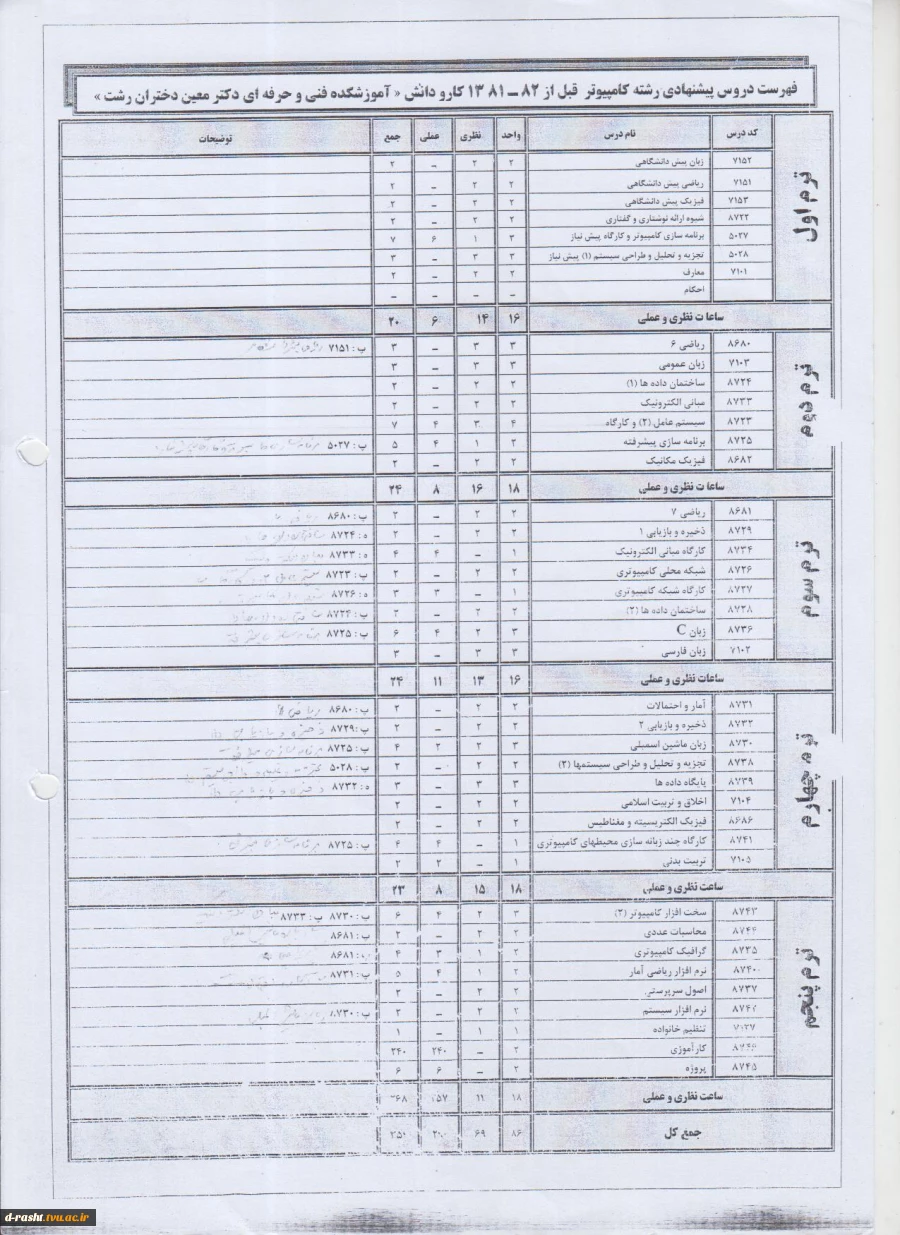 فهرست دروس پیشنهادی رشته کامپیوتر قبل از ۸۲ – ۱۳۸۱ کارو دانش « آموزشکده فنی و حرفه ای دکتر معین دختران رشت »
کد درس نام درس واحد نظری عملی جمع توضیحات
ترم اول
۷۱۵۲ زبان پیش دانشگاهی ۲ ۲ – ۲
۷۱۵۱ ریاضی پیش دانشگاهی ۲ ۲ – ۲
۷۱۵۳ فیزیک پیش دانشگاهی ۲ ۲ – ۲
۸۷۲۲ شیوه ارائه نوشتاری و گفتاری ۲ ۲ – ۲
۵۰۲۷ برنامه سازی کامپیوتر و کارگاه پیش نیاز ۳ ۱ ۶ ۷
۵۰۲۸ تجزیه و تحلیل و طراحی سیستم (۱) پیش نیاز ۳ ۳ – ۳
۷۱۰۱ معارف ۲ ۲ – ۲
احکام – – – –
ساعات نظری و عملی ۱۶ ۱۴ ۶ ۲۰
ترم دوم
۸۶۸۰ ریاضی ۶ ۳ ۳ – ۳ پ: ۷۱۵۱
۷۱۰۳ زبان عمومی ۳ ۳ – ۳
۸۷۲۴ ساختمان داده ها (۱) ۲ ۲ – ۲
۸۷۳۳ مبانی الکترونیک ۲ ۲ – ۲
۸۷۲۳ سیستم عامل (۲) و کارگاه ۴ ۳ ۴ ۷
۸۷۲۵ برنامه سازی پیشرفته ۲ ۱ ۴ ۵ پ: ۵۰۲۷
۸۶۸۲ فیزیک مکانیک ۲ ۲ – ۲
ساعات نظری و عملی ۱۸ ۱۶ ۸ ۲۴
ترم سوم
۸۶۸۱ ریاضی ۷ ۲ ۲ – ۲ پ: ۸۶۸۰
۸۷۲۹ ذخیره و بازیابی ۱ ۲ ۲ – ۲ ه: ۸۷۲۴
۸۷۳۴ کارگاه مبانی الکترونیک ۱ – ۴ ۴ ه: ۸۷۳۳
۸۷۲۶ شبکه محلی کامپیوتری ۲ ۲ – ۲ پ: ۸۷۲۳
۸۷۲۷ کارگاه شبکه کامپیوتری ۱ – ۳ ۳ ه: ۸۷۲۶
۸۷۲۸ ساختمان داده ها (۲) ۲ ۲ – ۲ پ: ۸۷۲۴
۸۷۳۶ زبان C ۳ ۲ ۴ ۶ پ: ۸۷۲۵
۷۱۰۲ زبان فارسی ۳ ۳ – ۳
ساعات نظری و عملی ۱۶ ۱۳ ۱۱ ۲۴
ترم چهارم
۸۷۳۱ آمار و احتمالات ۲ ۲ – ۲ پ: ۸۶۸۰
۸۷۳۲ ذخیره و بازیابی ۲ ۲ ۲ – ۲ پ: ۸۷۲۹
۸۷۳۰ زبان ماشین اسمبلی ۳ ۲ ۲ ۴ پ: ۸۷۲۵
۸۷۳۸ تجزیه و تحلیل و طراحی سیستمها (۲) ۲ ۲ – ۲ پ: ۵۰۲۸
۸۷۳۹ پایگاه داده ها ۳ ۳ – ۳ ه: ۸۷۳۲
۷۱۰۴ اخلاق و تربیت اسلامی ۲ ۲ – ۲
۸۶۸۶ فیزیک الکتریسیته و مغناطیس ۲ ۲ – ۲
۸۷۴۱ کارگاه چند زبانه سازی محیطهای کامپیوتری ۱ – ۴ ۴ پ: ۸۷۲۵
۷۱۰۵ تربیت بدنی ۱ – ۲ ۲
ساعت نظری و عملی ۱۸ ۱۵ ۸ ۲۳
ترم پنجم
۸۷۴۳ سخت افزار کامپیوتر (۲) ۳ ۲ ۴ ۶ پ: ۸۷۳۰ پ: ۸۷۳۳
۸۷۴۴ محاسبات عددی ۲ ۲ – ۲ پ: ۸۶۸۱
۸۷۳۵ گرافیک کامپیوتری ۲ ۱ ۳ ۴ ۸۶۸۱
۸۷۴۰ نرم افزار ریاضی آمار ۲ ۱ ۴ ۵ پ: ۸۷۳۱
۸۷۳۷ اصول سرپرستی ۲ ۲ – ۲
نرم افزار سیستم ۲ ۲ – ۲ پ: ۸۷۳۰
تنظیم خانواده ۱ ۱ – ۱
کارآموزی ۲ – ۲۴۰ ۲۴۰
۸۷۴۵ پروژه ۲ – ۶ ۶
ساعت نظری و عملی ۱۸ ۱۱
جمع کل ۸۶ ۶۹
d-rasht.tvu.ac.ir